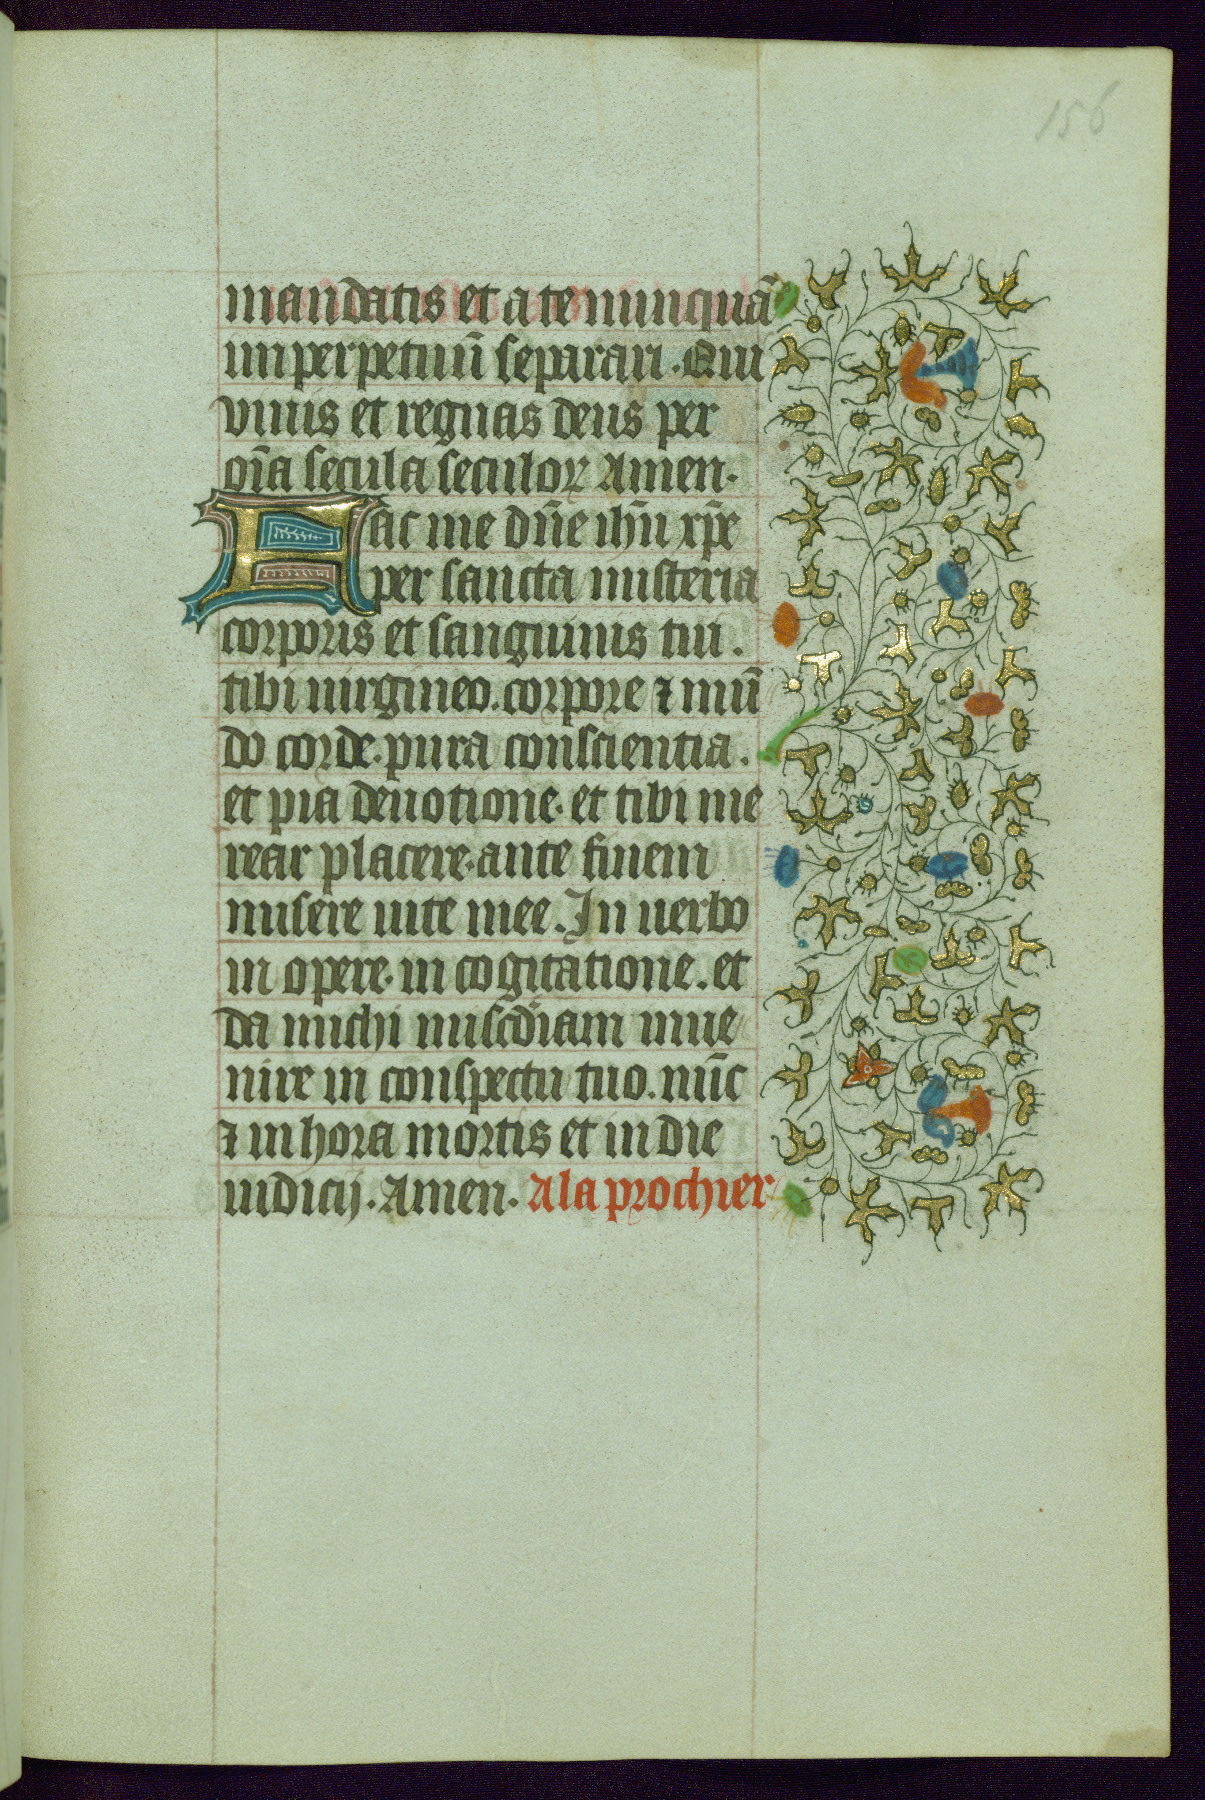 156
mandatis et a te nunquā
inperpetuū separari. Qui
viuis et regnas deus per
oīa secula seculoꝝ Amen.
Fac me dn̄e ih̄u xp̄e
per sancta misteria
corporis et sanguinis tui.
tibi uirgineo. corpore ⁊ mū
do corde. pura consciencia.
et pia deuotione. et tibi me
rear placere. ante finem
misere uite mee. In uerbo
in opere. in cogitatione. et
da michi misc̄diam inue
nire in conspectu tuo. nūc
⁊ in hora mortis et in die
iudicij. Amen. A la prochier